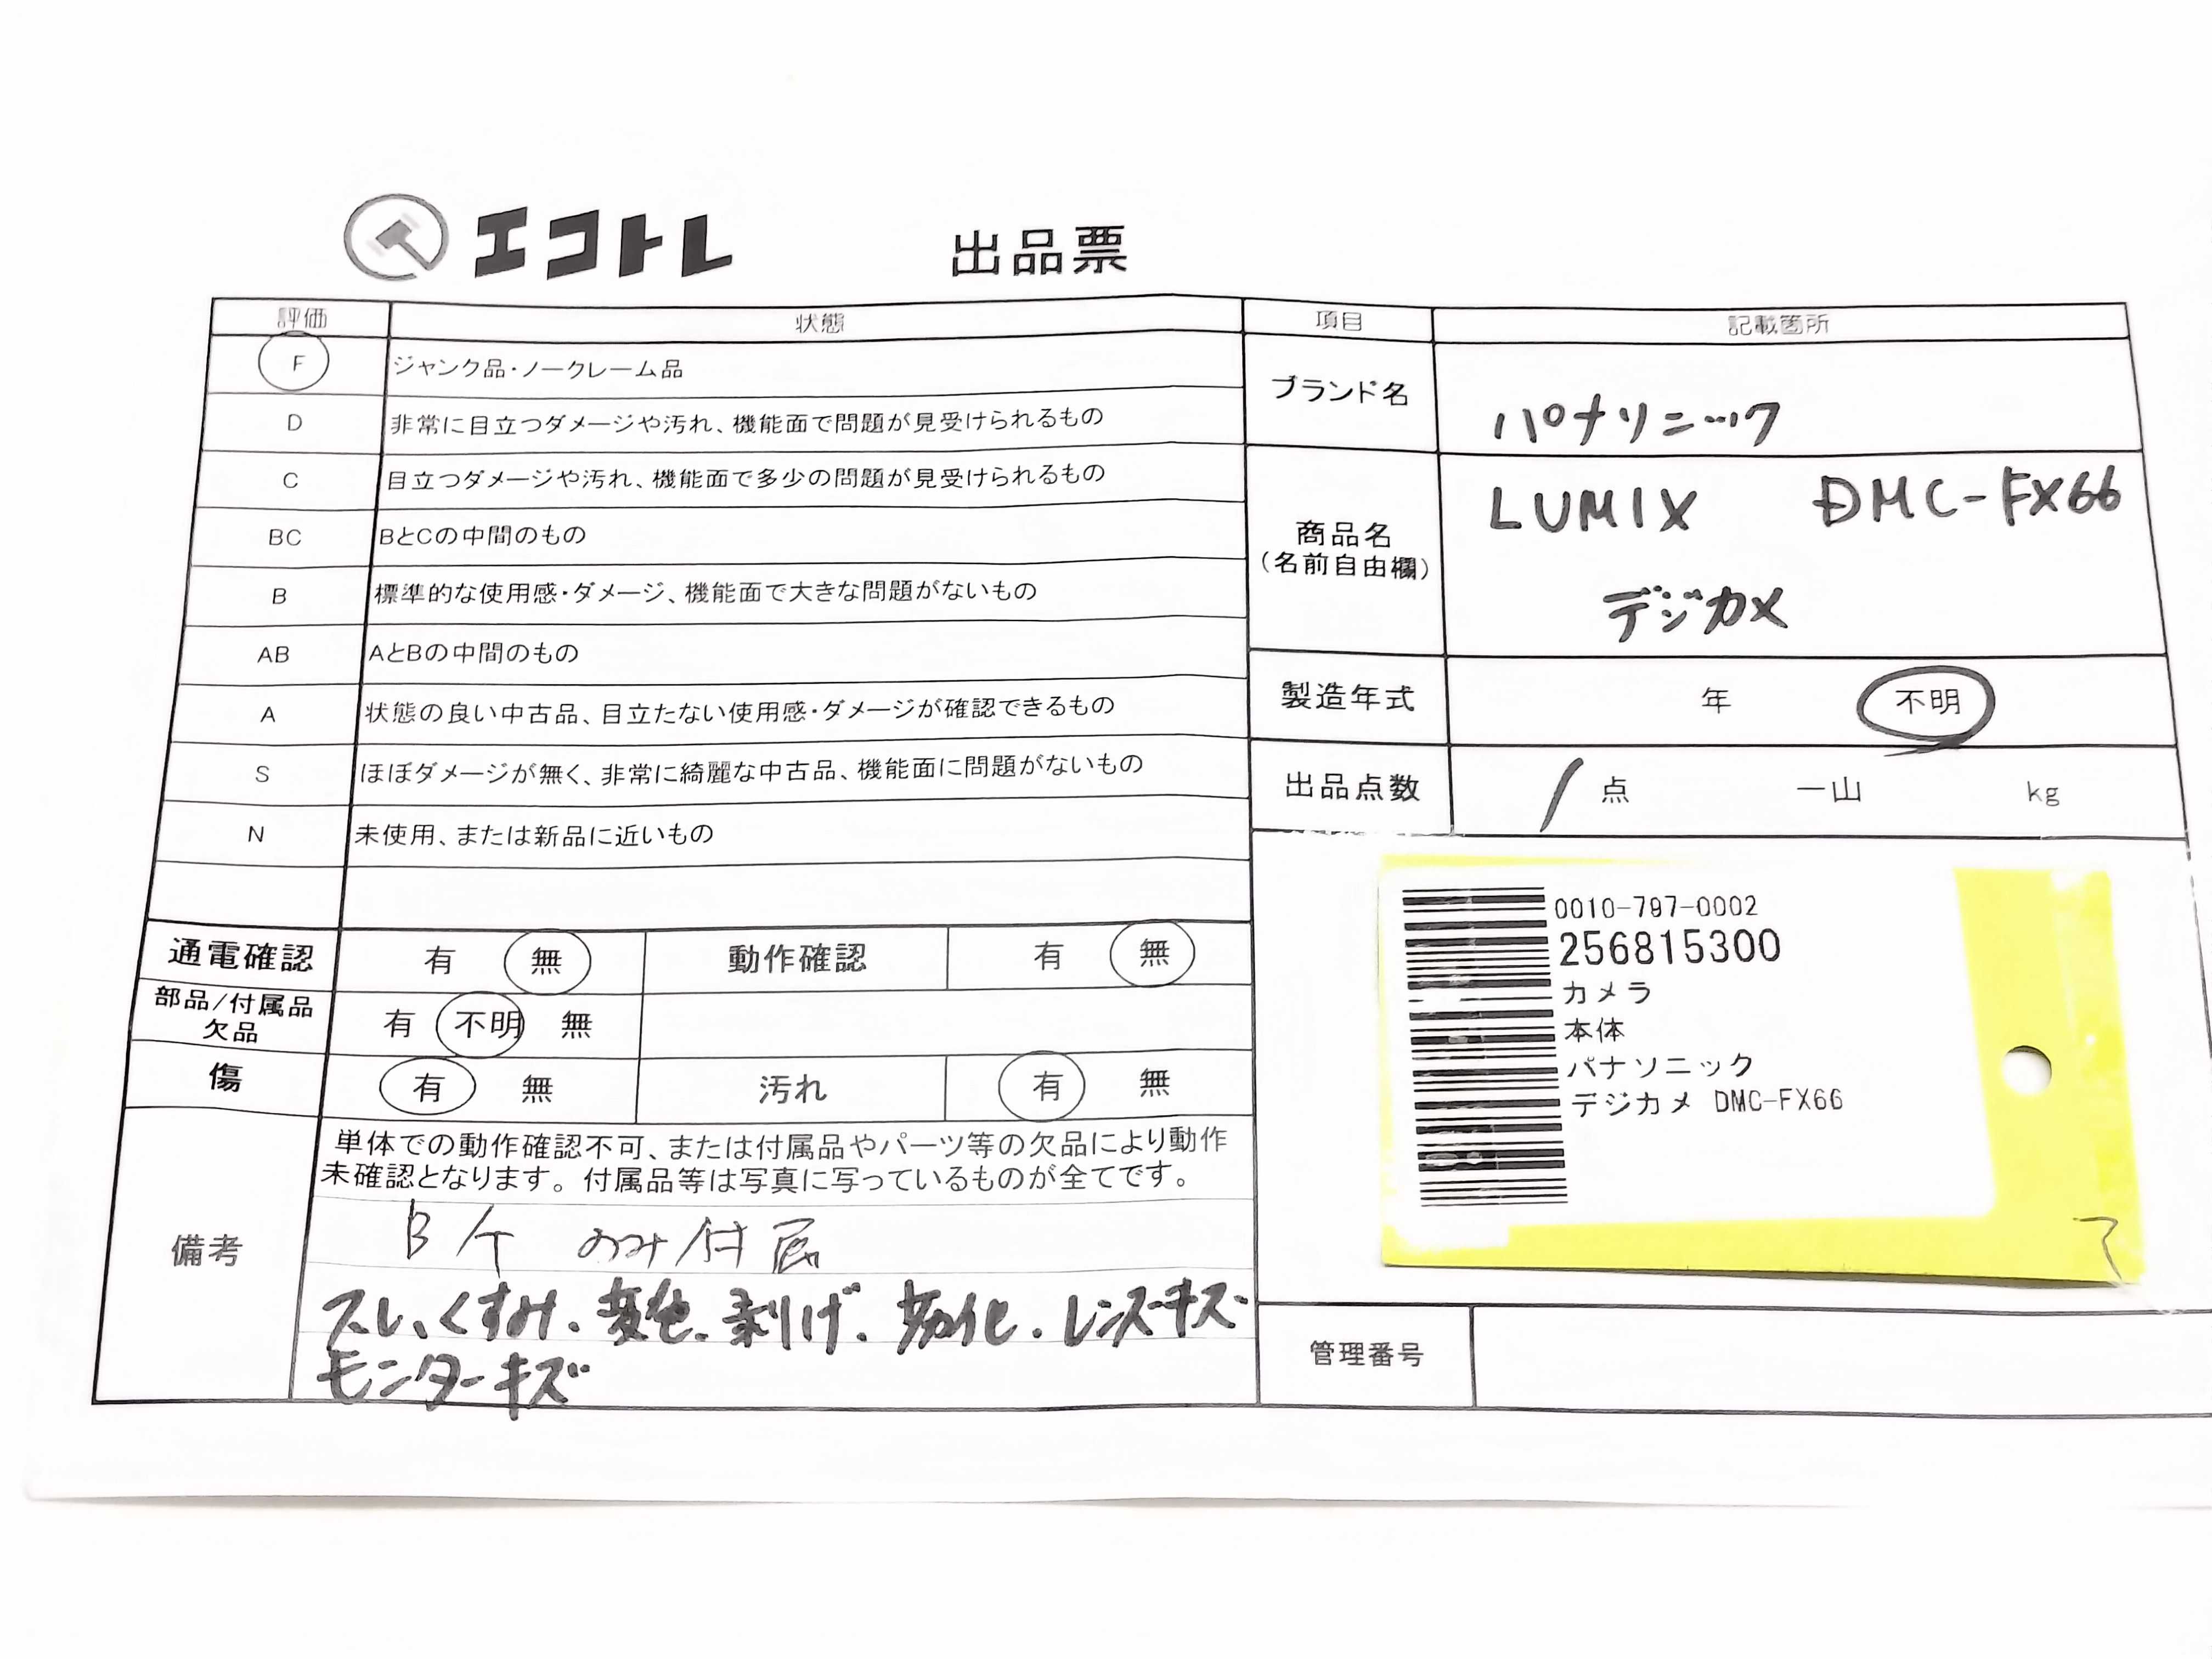 エコトレ 出品票
評価 状態
F ジャンク品・ノークレーム品
D 非常に目立つダメージや汚れ、機能面で問題が見受けられるもの
C 目立つダメージや汚れ、機能面で多少の問題が見受けられるもの
BC BとCの中間のもの
B 標準的な使用感・ダメージ、機能面で大きな問題がないもの
AB AとBの中間のもの
A 状態の良い中古品、目立たない使用感・ダメージが確認できるもの
S ほぼダメージが無く、非常に綺麗な中古品、機能面に問題がないもの
N 未使用、または新品に近いもの
通電確認 有 無 動作確認 有 無
部品/付属品
欠品 有 不明 無
傷 有 無 汚れ 有 無
備考
単体での動作確認不可、または付属品やパーツ等の欠品により動作
未確認となります。付属品等は写真に写っているものが全てです。
B/T のみ付属
スレ、くすみ、変色、剥げ、劣化、レンズキズ・
モニターキズ
項目 記載箇所
ブランド名 パナソニック
商品名
(名前自由欄)
LUMIX DMC-FX66
デジカメ
製造年式 年 不明
出品点数 1 点 一山 kg
0010-797-0002
256815300
カメラ
本体
パナソニック
デジカメ DMC-FX66
管理番号